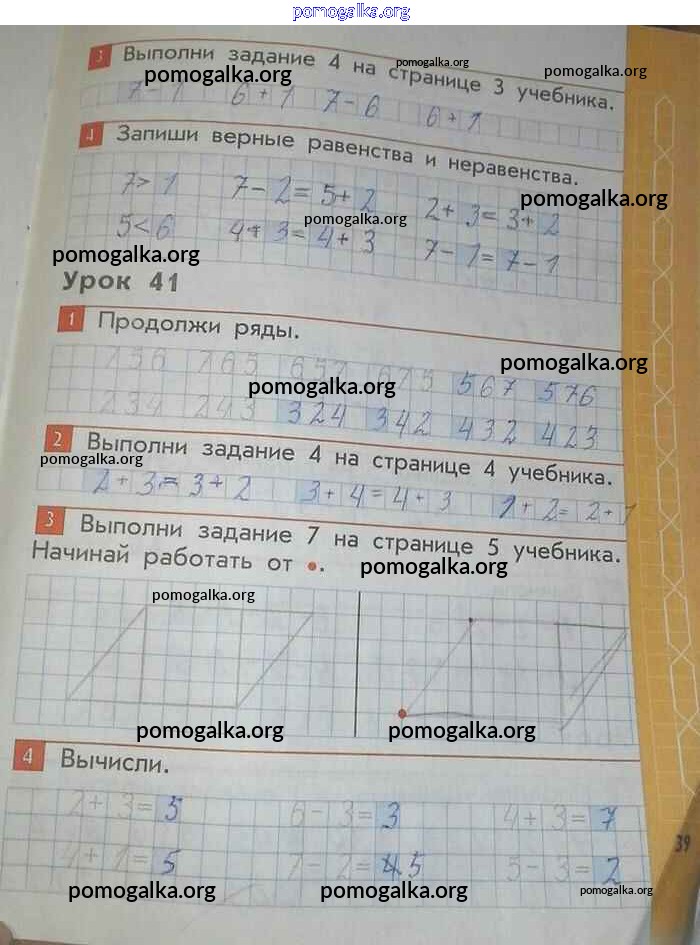 pomogalka.org
3 Выполни задание 4 на странице 3 учебника.
pomogalka.org pomogalka.org pomogalka.org
7 - 1 6 + 1 7 - 6 6 + 1
4 Запиши верные равенства и неравенства.
7 > 1 7 - 2 = 5 + 2 2 + 3 = 3 + 2
pomogalka.org pomogalka.org
5 < 6 4 + 3 = 4 + 3 7 - 1 = 7 - 1
pomogalka.org
Урок 41
1 Продолжи ряды.
pomogalka.org
756 765 657 675 567 576
pomogalka.org
234 243 324 342 432 423
2 Выполни задание 4 на странице 4 учебника.
pomogalka.org
2 + 3 = 3 + 2 3 + 4 = 4 + 3 1 + 2 = 2 + 1
3 Выполни задание 7 на странице 5 учебника.
Начинай работать от •.
pomogalka.org
pomogalka.org
pomogalka.org pomogalka.org
4 Вычисли.
2 + 3 = 5 6 - 3 = 3 4 + 3 = 7
39
4 + 1 = 5 7 - 2 = 45 5 - 3 = 2
pomogalka.org pomogalka.org pomogalka.org